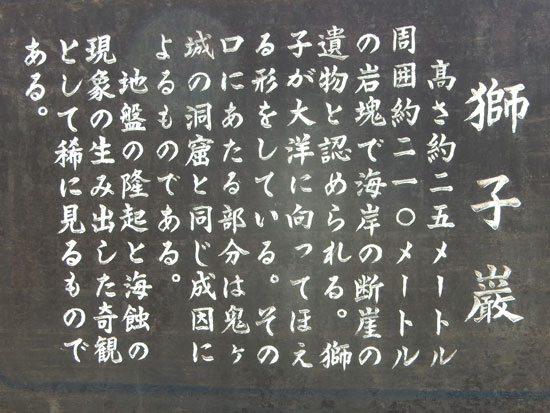 獅子巌
高さ約二五メートル
周囲約二一〇メートル
の岩塊で海岸の断崖の
遺物と認められる。獅
子が大洋に向ってほえ
る形をしている。その
口にあたる部分は鬼ヶ
城の洞窟と同じ成因に
よるものである。
地盤の隆起と海蝕の
現象の生み出した奇観
として稀に見るもので
ある。